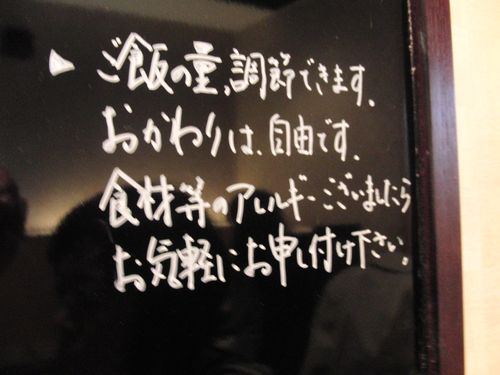 ご飯の量、調節できます。
おかわりは、自由です。
食材等のアレルギーございましたら
お気軽にお申し付け下さい。